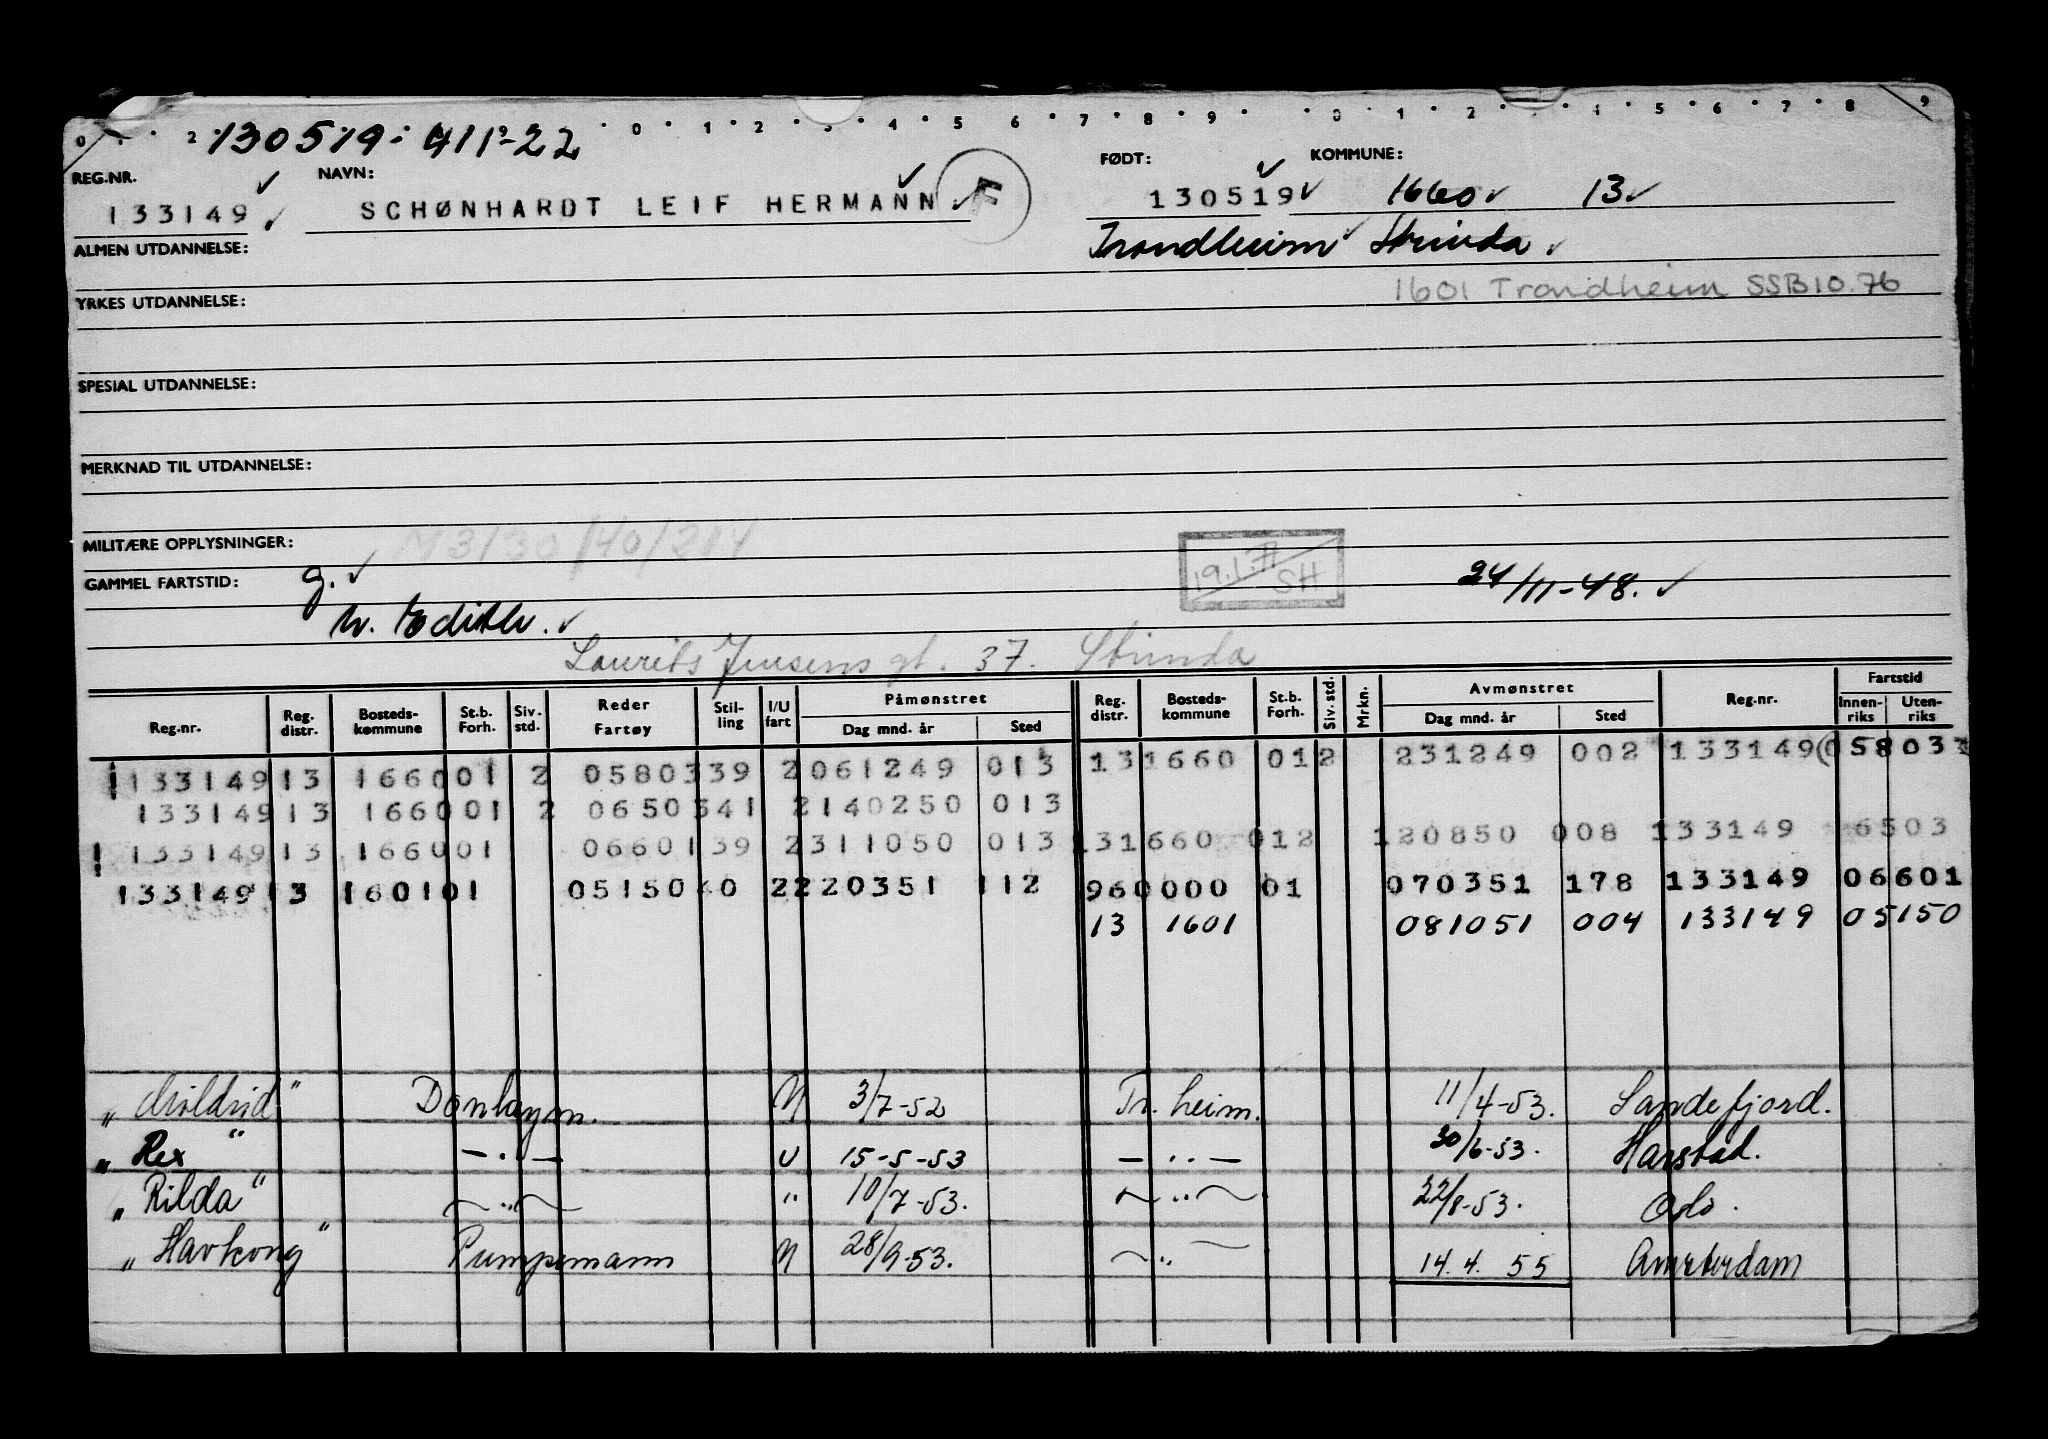 130519 - 411-22
REG.NR. NAVN: FØDT: KOMMUNE:
133149 SCHØNHARDT LEIF HERMANN F 130519 1660 13
ALMEN UTDANNELSE: Trondheim Strinda
YRKES UTDANNELSE: 1601 Trondheim SSB10.76
SPESIAL UTDANNELSE:
MERKNAD TIL UTDANNELSE:
MILITÆRE OPPLYSNINGER: M3130/40/214
GAMMEL FARTSTID: g. SH 24/11-48.
h. Edith.
Laurits Jensens gt. 37. Strinda
Reg.nr. Reg. distr. Bosteds-kommune St.b. Forh. Siv. std. Reder Fartøy Stil-ling I/U fart Påmønstret Dag mnd. år Sted Reg. distr. Bosteds-kommune St.b. Forh. Siv. std. Mrkn. Avmønstret Dag mnd. år Sted Reg.nr. Fartstid Innen-riks Uten-riks
133149 13 1660 01 2 0580339 2 061249 013 13 1660 01 2 231249 002 133149 058033
133149 13 1660 01 2 0650341 2 140250 013
133149 13 1660 01 0660139 2 311050 013 13 1660 01 2 120850 008 133149 6503
133149 13 1601 01 0515040 2 220351 112 96 0000 01 070351 178 133149 06601
13 1601 081051 004 133149 05150
Donkeym. N 3/7-52 Tr.heim. 11/4-53. Sandefjord.
"Rex" -"- U 15-5-53 -"- 30/6-53. Harstad.
"Rilda" -"- " 10/7-53. -"- 22/8-53. Oslo.
"Havkong" Pumpemann N 28/9-53. -"- 14.4. 55 Amsterdam